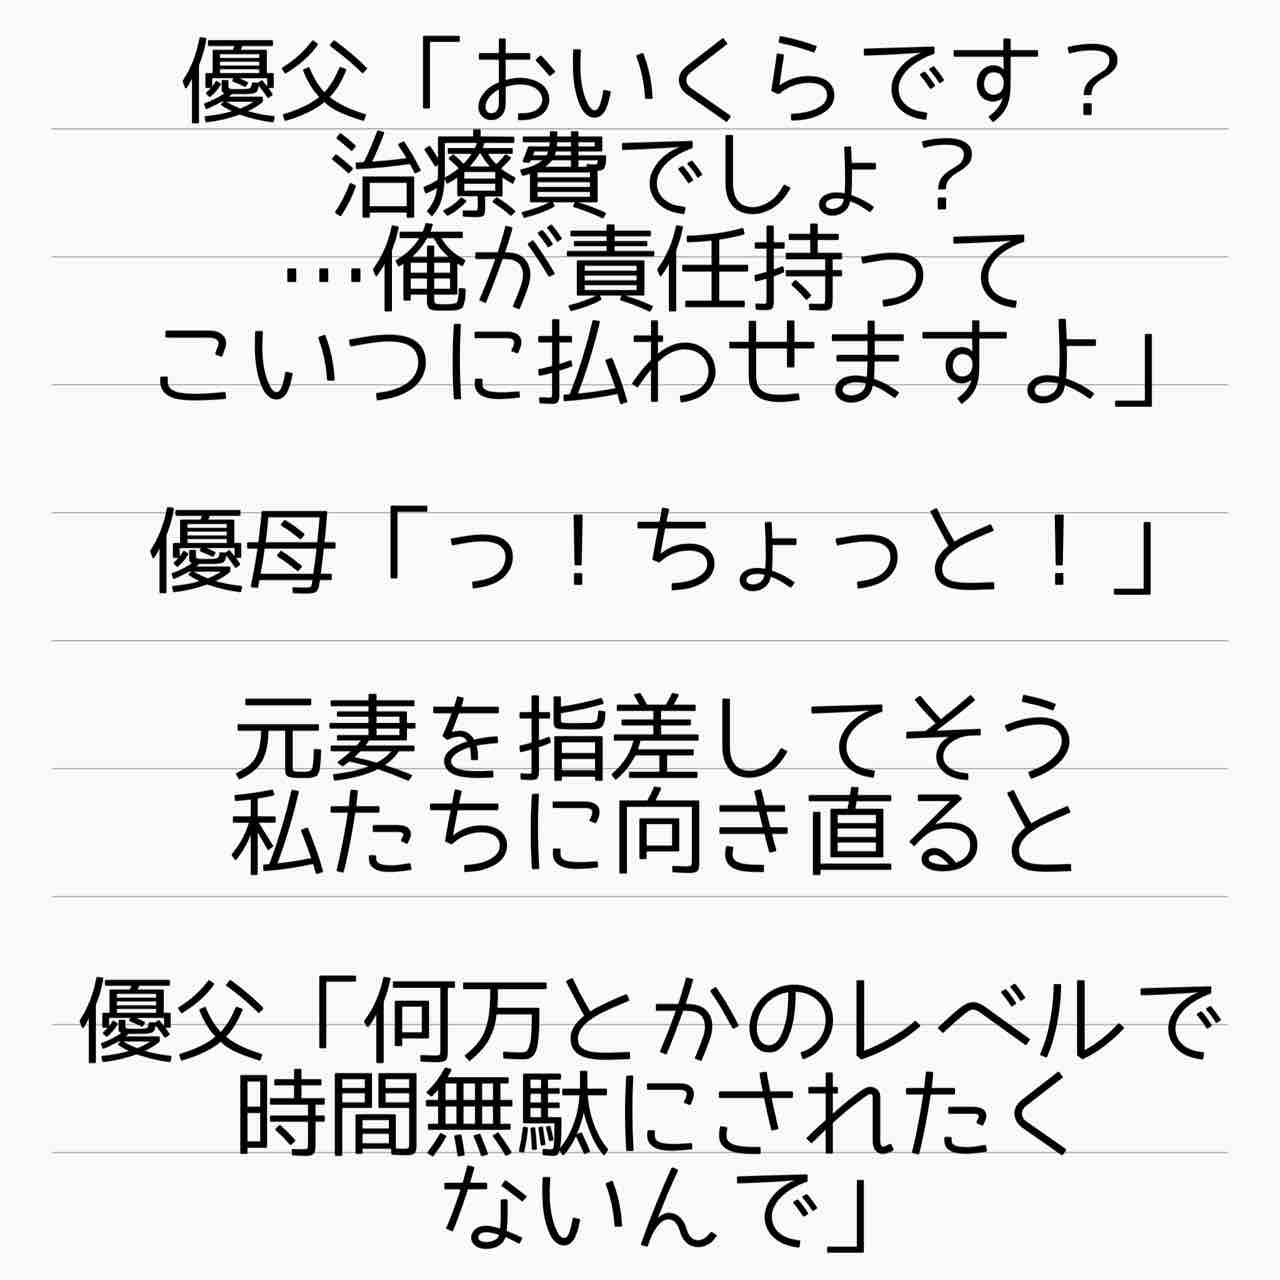 優父「おいくらです？
治療費でしょ？
…俺が責任持って
こいつに払わせますよ」
優母「っ！ちょっと！」
元妻を指差してそう
私たちに向き直ると
優父「何万とかのレベルで
時間無駄にされたく
ないんで」